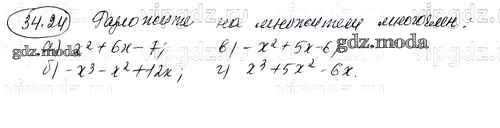 34.24 Разложите на множители многочлен:
а) x² + 6x - 7; в) - x² + 5x - 6;
б) - x³ - x² + 12x; г) x³ + 5x² - 6x.
gdz.moda gdz.moda